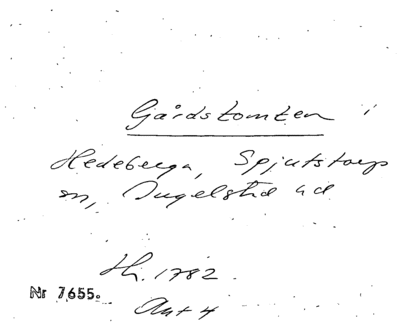 Gårdstomten i
Hedeberga, Spjutstorps
sn, Ingelstad hd
Hh. 1782.
Nr 7655.
Ant 4